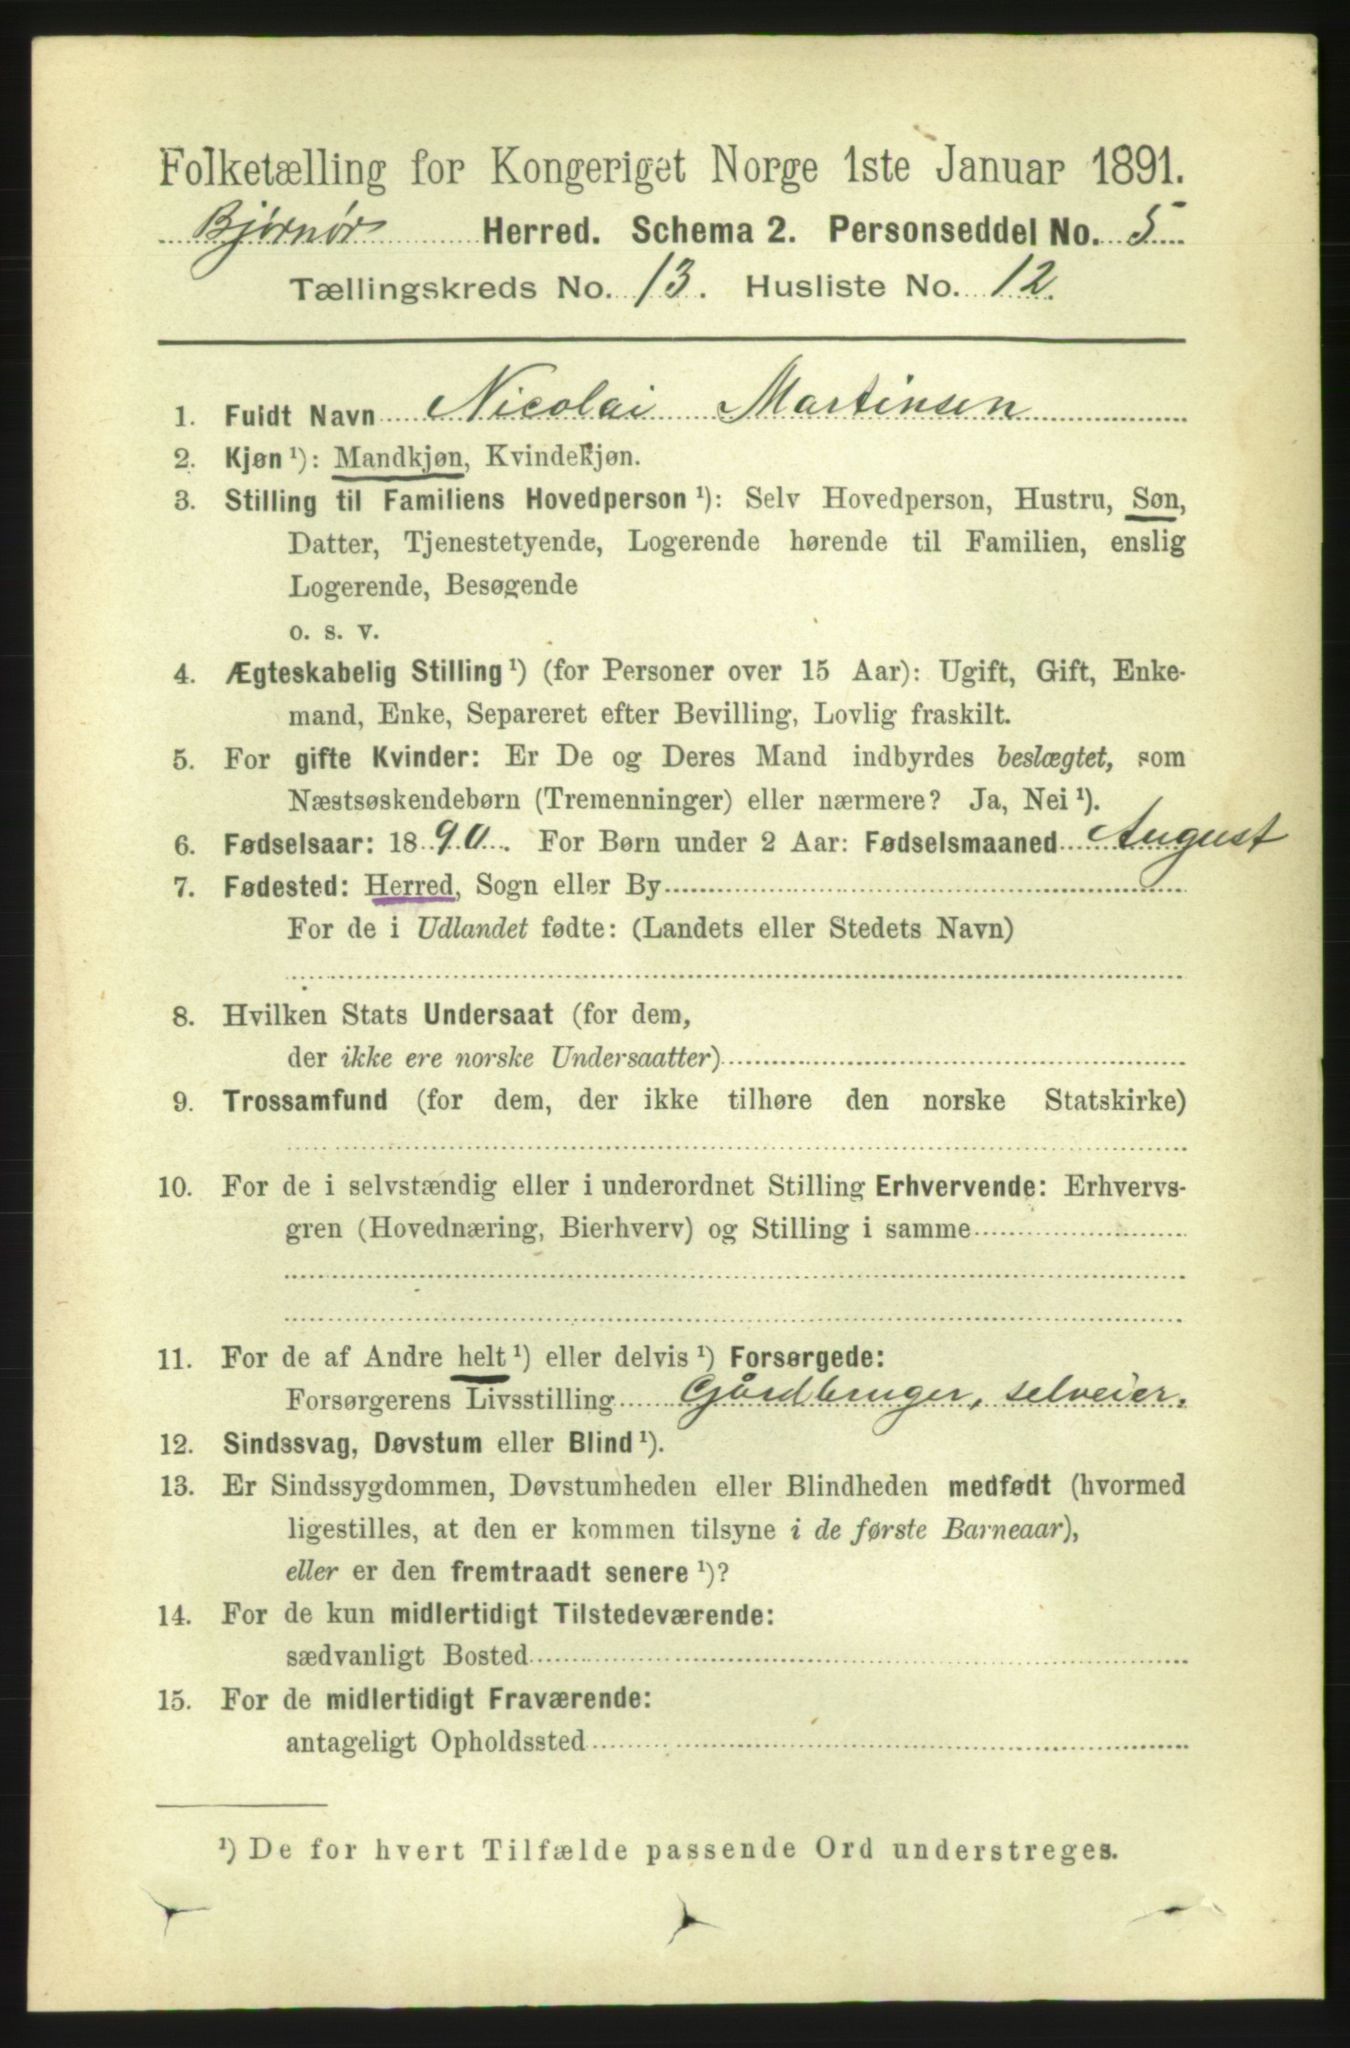 Folketælling for Kongeriget Norge 1ste Januar 1891.
Bjørnør Herred. Schema 2. Personseddel No. 5
Tællingskreds No. 13. Husliste No. 12.
1. Fuldt Navn Nicolai Martinsen
2. Kjøn ¹): Mandkjøn, Kvindekjøn.
3. Stilling til Familiens Hovedperson ¹): Selv Hovedperson, Hustru, Søn,
Datter, Tjenestetyende, Logerende hørende til Familien, enslig
Logerende, Besøgende
o. s. v.
4. Ægteskabelig Stilling ¹) (for Personer over 15 Aar): Ugift, Gift, Enke-
mand, Enke, Separeret efter Bevilling, Lovlig fraskilt.
5. For gifte Kvinder: Er De og Deres Mand indbyrdes beslægtet, som
Næstsøskendebørn (Tremenninger) eller nærmere? Ja, Nei ¹).
6. Fødselsaar: 1890. For Børn under 2 Aar: Fødselsmaaned August
7. Fødested: Herred, Sogn eller By
For de i Udlandet fødte: (Landets eller Stedets Navn)
8. Hvilken Stats Undersaat (for dem,
der ikke ere norske Undersaatter)
9. Trossamfund (for dem, der ikke tilhøre den norske Statskirke)
10. For de i selvstændig eller i underordnet Stilling Erhvervende: Erhvervs-
gren (Hovednæring, Bierhverv) og Stilling i samme
11. For de af Andre helt ¹) eller delvis ¹) Forsørgede:
Forsørgerens Livsstilling Gårdbruger, selveier.
12. Sindssvag, Døvstum eller Blind ¹).
13. Er Sindssygdommen, Døvstumheden eller Blindheden medfødt (hvormed
ligestilles, at den er kommen tilsyne i de første Barneaar),
eller er den fremtraadt senere ¹)?
14. For de kun midlertidigt Tilstedeværende:
sædvanligt Bosted
15. For de midlertidigt Fraværende:
antageligt Opholdssted
¹) De for hvert Tilfælde passende Ord understreges.